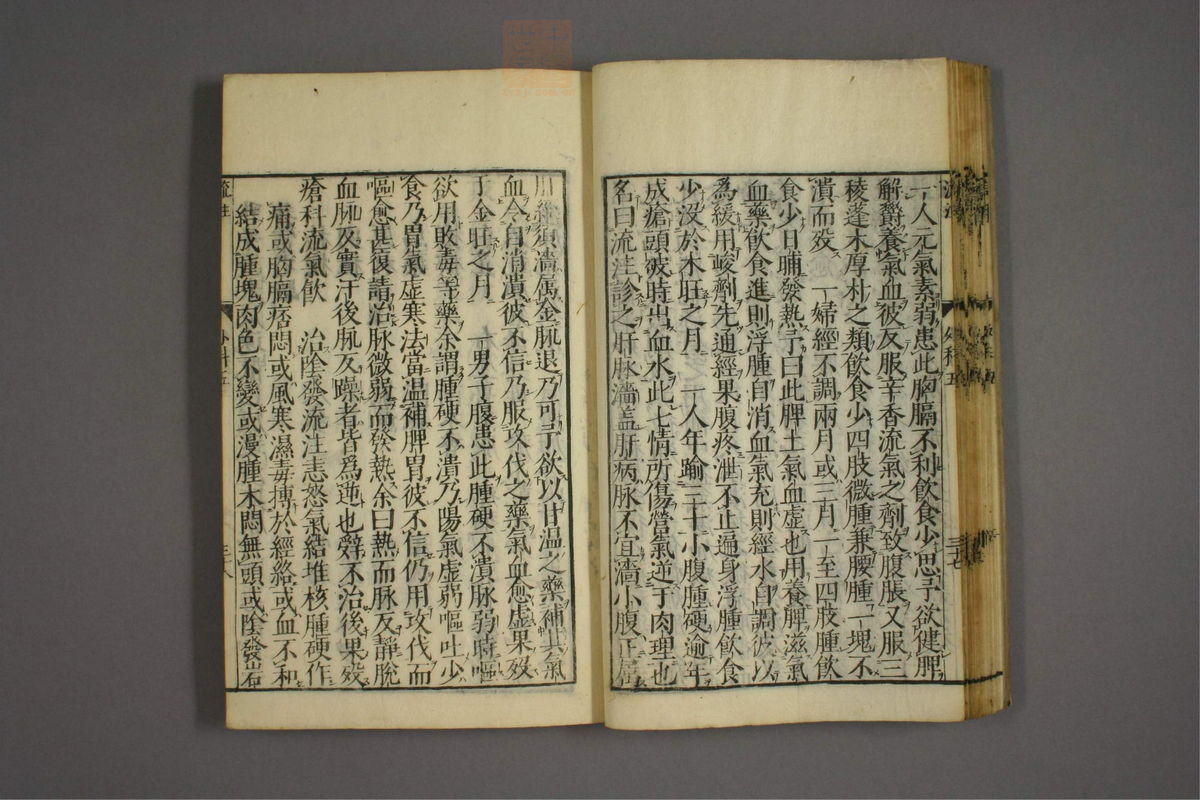 一人元氣素弱患此胸膈不利飲食少思予欲健脾
解欝養氣血彼反服辛香流氣之劑致腹脹又服三
稜蓬朮厚朴之類飲食少四肢微腫兼腰腫一塊不
潰而歿　一婦經不調兩月或三月一至四肢腫飲
食少日晡發熱予曰此脾土氣血虛也用養脾滋氣
血藥飲食進則浮腫自消血氣充則經水自調彼以
為緩用峻劑先通經果腹疼泄不止遍身浮腫飲食
少沒於木旺之月　一人年踰三十小腹腫硬逾年
成瘡頭破時出血水此七情所傷營氣逆于肉理也
名曰流注診之肝脉濇盖肝病脉不宜濇小腹正屬
須濇属金脉退乃可予欲以甘温之藥補其氣
血令自消潰彼不信乃服攻伐之藥氣血愈虛果歿
于金旺之月　一男子腹患此腫硬不潰脉弱時嘔
欲用敗毒等藥余謂腫硬不潰乃陽氣虛弱嘔吐少
食乃胃氣虛寒法當温補脾胃彼不信仍用攻伐而
嘔愈甚復請治脉微弱而發熱余曰熱而脉反靜脫
血脉反實汗後脉反躁者皆爲逆也辭不治後果歿
瘡科流氣飲　治陰發流注恚怒氣結堆核腫硬作
痛或胸膈痞悶或風寒濕毒搏於經絡或血不和
結成腫塊肉色不變或漫腫木悶無頭或陰發
流注　外科五　三十八